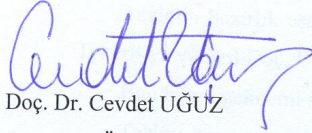 Doç. Dr. Cevdet UĞUZ